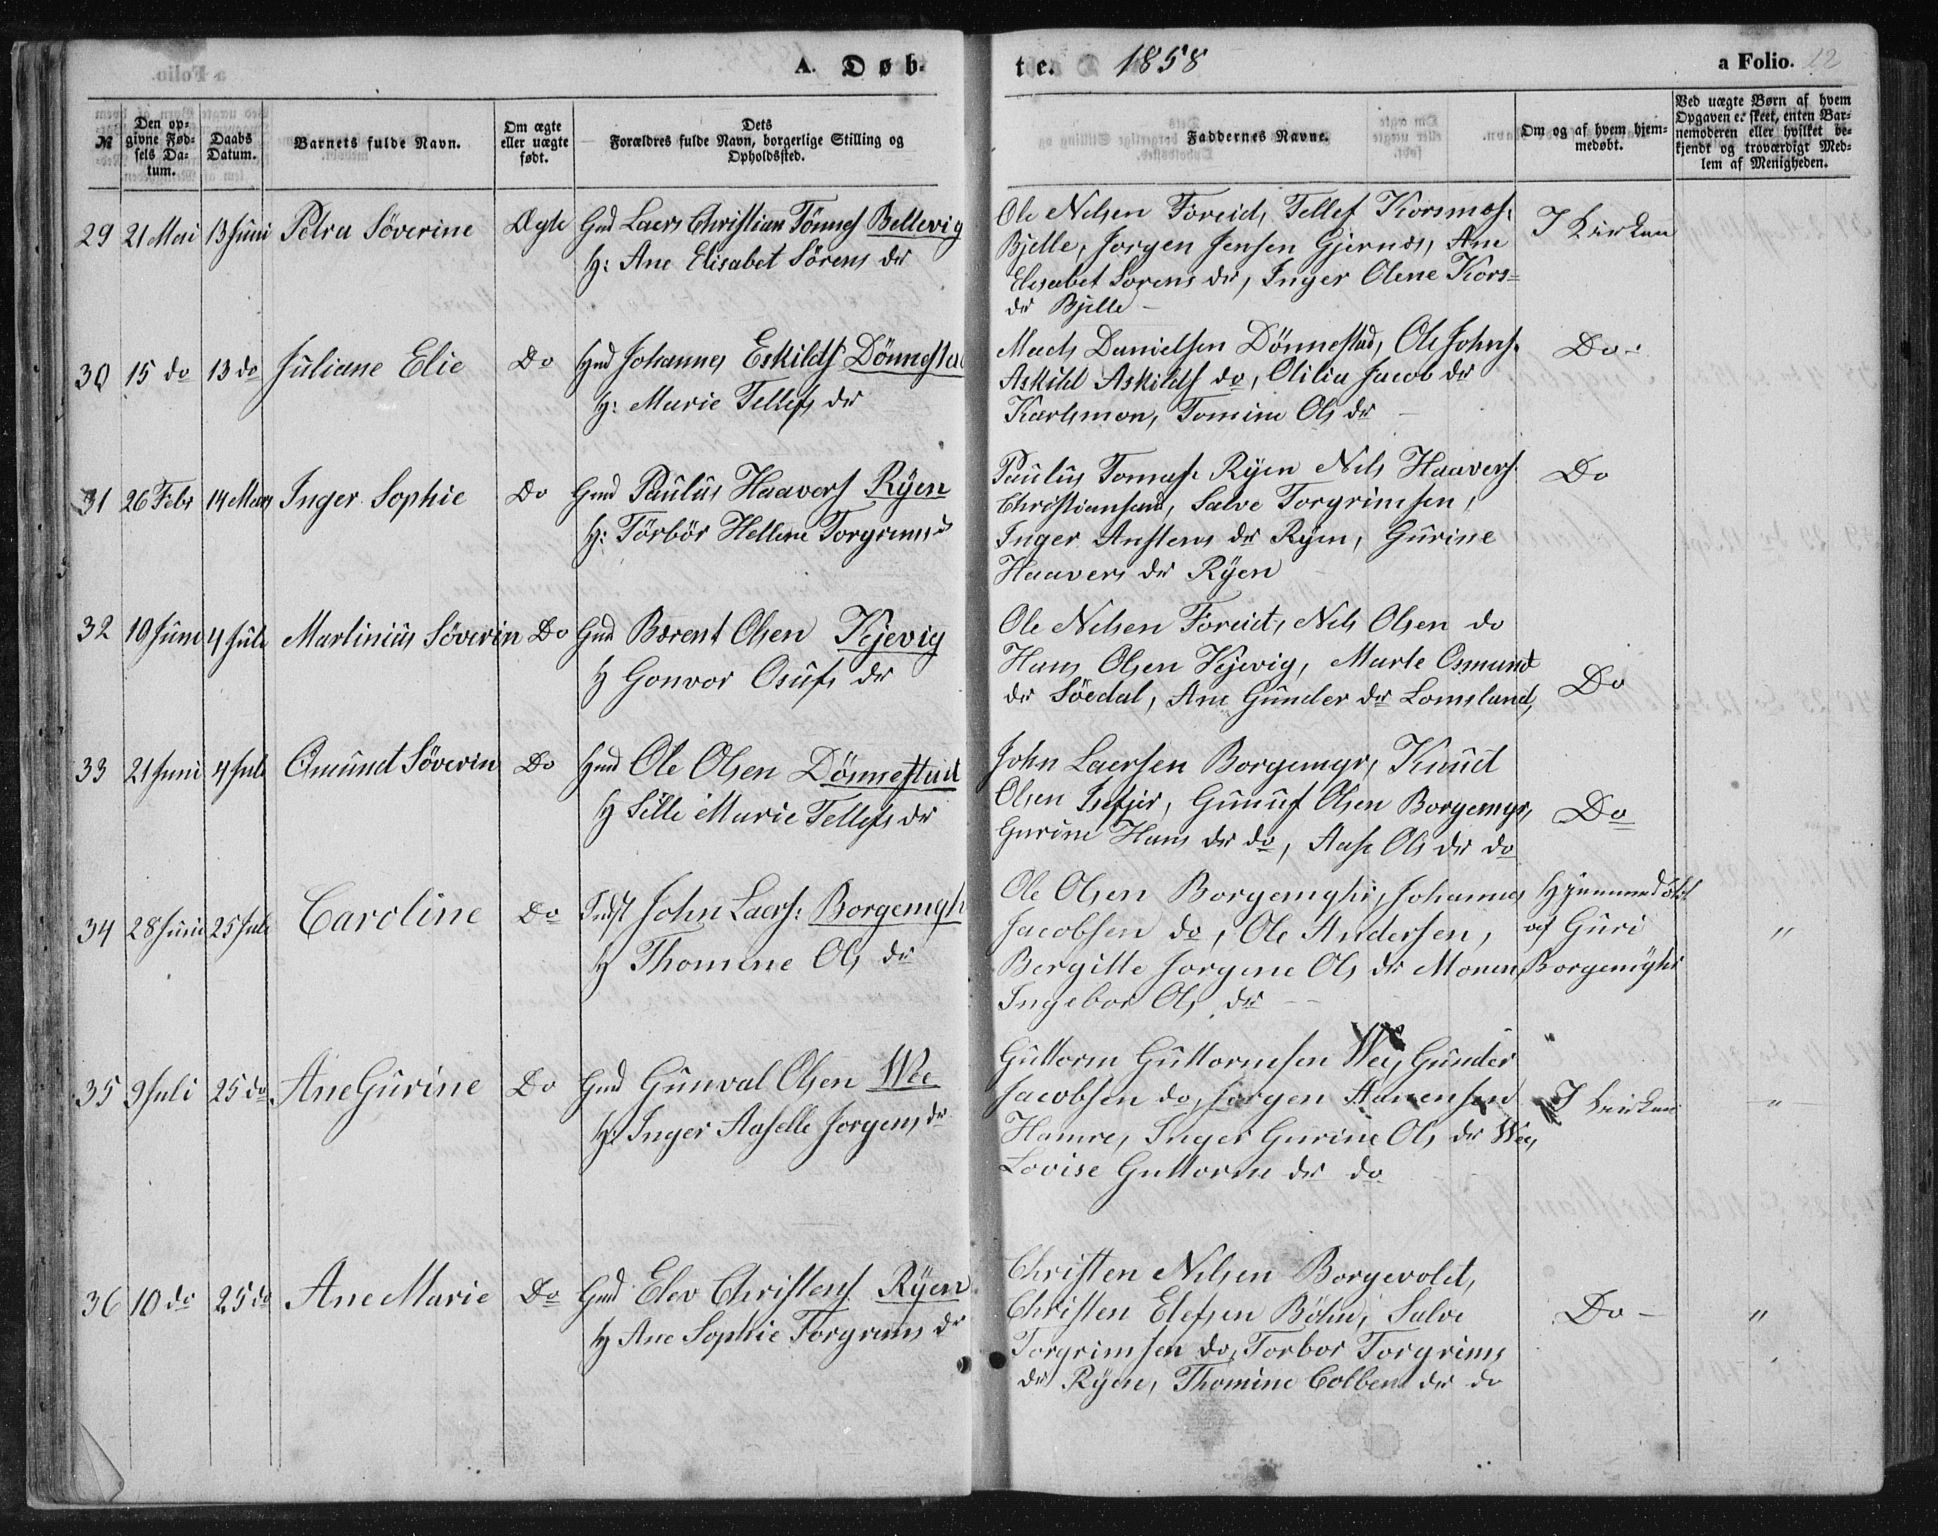 A. Døb-
te. 1858
a Folio. 12
№
Den op-
givne Fød-
sels Da-
tum.
Daabs
Datum.
Barnets fulde Navn.
Om ægte
eller uægte
født.
Dets
Forældres fulde Navn, borgerlige Stilling og
Opholdssted.
Faddernes Navne.
Om og af hvem hjem-
medøbt.
Ved uægte Børn af hvem
Opgaven er skeet, enten Bar-
nemoderen eller hvilket be-
kjendt og troværdigt Med-
lem af Menigheden.
29 21 Mai 13 Juni Petra Söverine Ægte Gmd Laers Christian Tönnes Bellevig
H: Ane Elisabet Sörens dr
Ole Nelsen Foreid, Tellef Korsmos:
Bjelle, Jorgen Jensen Gjernæs, Ane
Elisabet Sorens dr, Inger Olene Kors=
dr Bjelle –
I Kirken
30 15 do 13 do Juliane Elie Do Hmd Johannes Eskilds Dönnestad
H: Marie Tellefs dr
Mads Danielsen Dönnestad, Ole Johns.
Askild Askilds do, Otilia Jacob dr
Karlsmon, Tomine Ols dr –
Do –
31 26 Febr 14 Mars Inger Sophie Do Gmd Paulus Haavers Ryen
H: Törbör Hellene Torgrims dr
Paulus Tomass. Ryen Nils Haavers
Christiansand, Salve Torgrimsen,
Inger Anstens dr Ryen, Gurine
Haavers dr Ryen
Do
32 19 Juni 4 Juli Martinius Söverin Do Gmd Bærent Olsen Kjevig
H Gonvor Osufs dr
Ole Nelsen Foreid, Nels Olsen do
Hans Olsen Kjevig, Marte Osmund
dr Söedal, Ane Gunder dr Lomsland,
Do
33 21 Juni 4 Juli Omund Söverin Do Hmd Ole Olsen Dönnestad
H Sille Marie Tellefs dr
John Laersen Borgemyr, Knud
Olsen, Gunuf Olsen Borgemyr,
Gurine Hans dr do, Aase Ols dr do
Do
34 28 Juni 25 Juli Caroline Do Indst John Laers: Borgemyh
H Thomine Ols dr
Ole Olsen Borgemyhr, Johannes
Jacobsen do, Ole Andersen,
Bergitte Jorgine Ols dr Monen,
Ingebor Ols dr –
Hjemmedöbt
af Guri
Borgemyhr
"
35 9 Juli 25 do Ane Gurine Do Gmd Gunval Olsen Wee
H: Inger Aaselle Jorgens dr
Guttorm Guttormsen Wee, Gunder
Jacobsen do, Jorgen Aanensen
Hamre, Inger Gurine Ols dr Wee,
Lovise Guttorm dr do
I Kirken
"
36 10 do 25 do Ane Marie Do Gmd Elev Christens Ryen
H Ane Sophie Torgrims dr
Christen Nelsen Borgevold,
Christen Elefsen Böhn, Salve
Torgrimsen do, Torbor Torgrims
dr Ryen, Thomine Colbens dr do
Do –
"